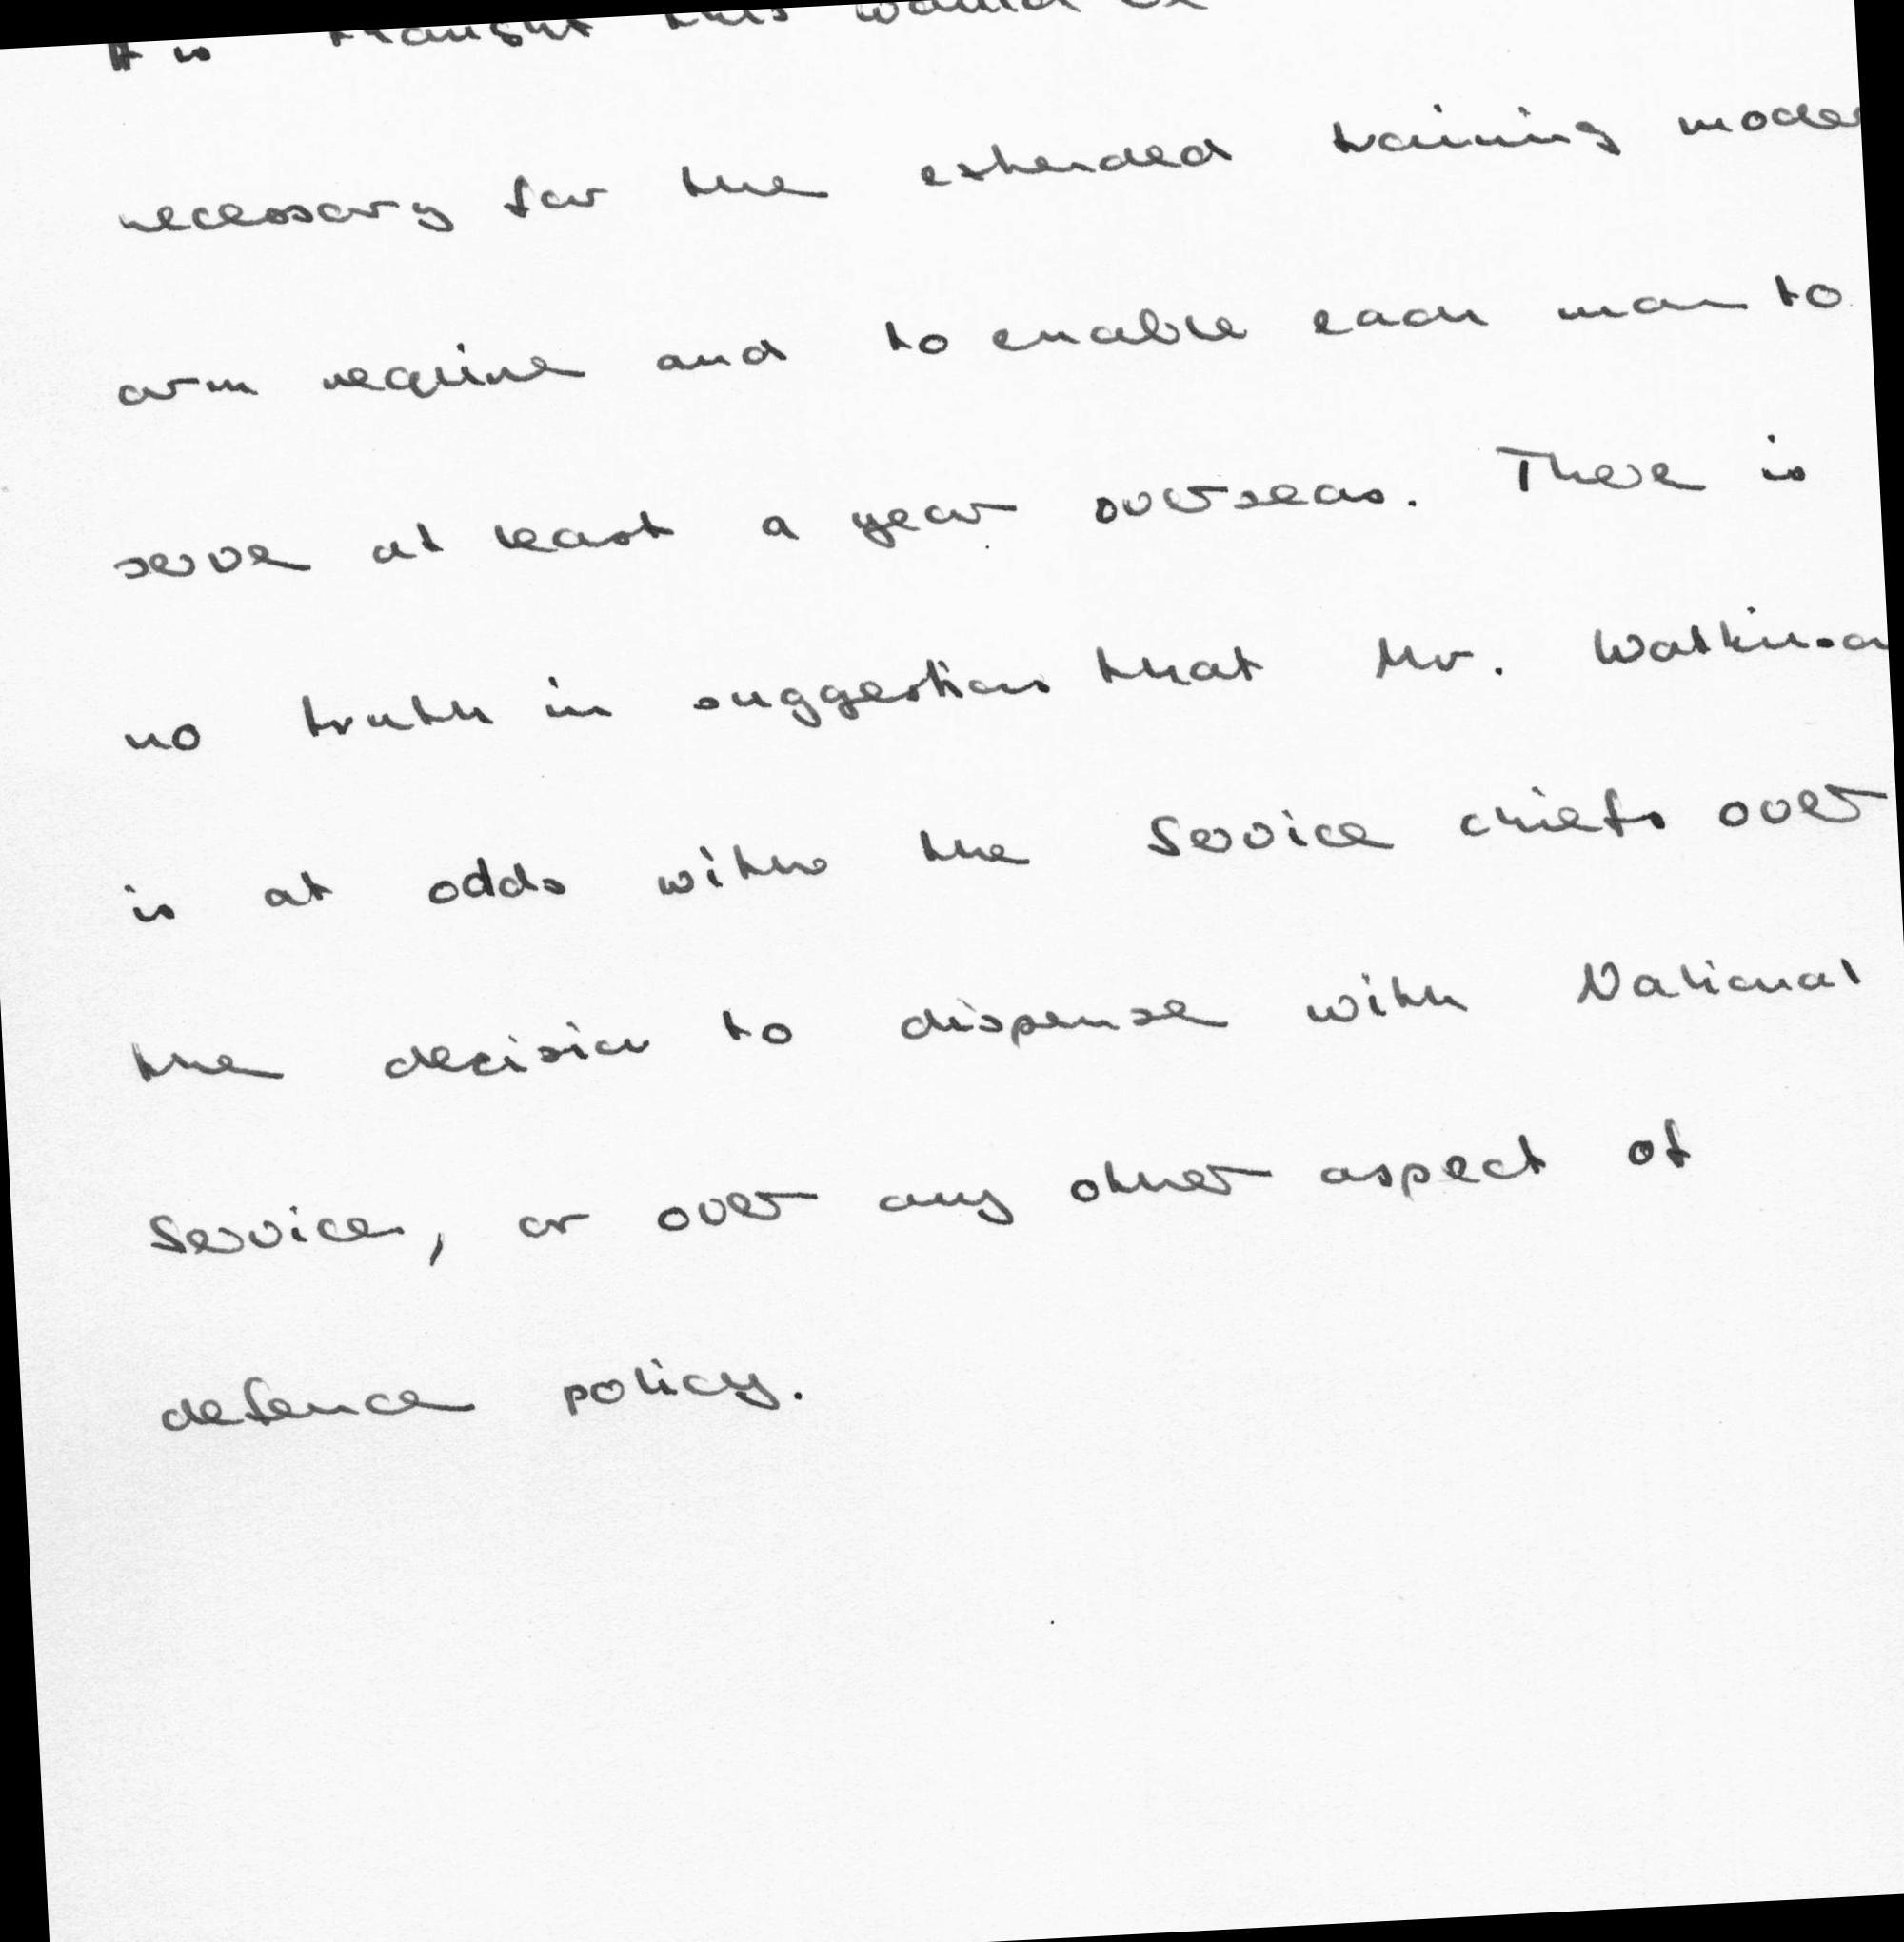 It is thought this would be
necessary for the extended training modern
arm require and to enable each man to
serve at least a year overseas. There is
no truth in suggestions that Mr. Watkinson
is at odds with the Service chiefs over
the decision to dispense with National
Service, or over any other aspect of
defence policy.